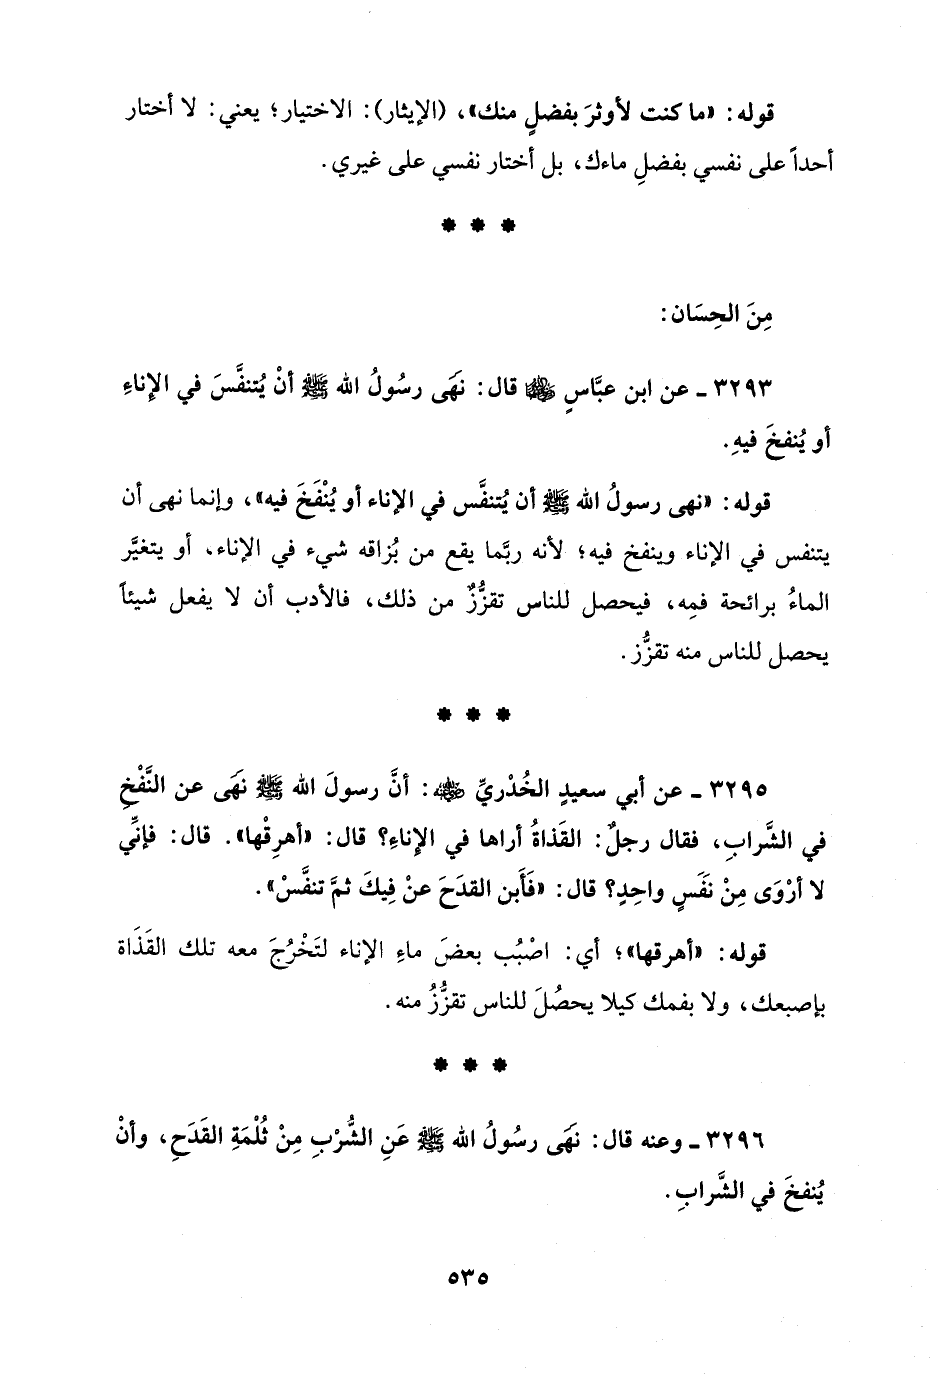 قوله: «ما كنت لأوثرَ بفضلٍ منك»، (الإيثار): الاختيار؛ يعني: لا أختار
أحداً على نفسي بفضلِ ماءك، بل أختار نفسي على غيري.
* * *
مِنَ الحِسَان:
٣٢٩٣ ـ عن ابن عبَّاسٍ ﵄ قال: نهَى رسُولُ الله ﷺ أنْ يُتنفَّسَ في الإناءِ
أو يُنفخَ فيهِ.
قوله: «نهى رسولُ الله ﷺ أن يُتنفَّس في الإناء أو يُنْفَخَ فيه»، وإنما نهى أن
يتنفس في الإناء وينفخ فيه؛ لأنه ربَّما يقع من بُزاقه شيء في الإناء، أو يتغيَّر
الماءُ برائحة فمِه، فيحصل للناس تقزُّزٌ من ذلك، فالأدب أن لا يفعل شيئاً
يحصل للناس منه تقزُّز.
* * *
٣٢٩٥ ـ عن أبي سعيدٍ الخُدْريِّ ﵁: أنَّ رسولَ الله ﷺ نهَى عن النَّفْخِ
في الشَّرابِ، فقال رجلٌ: القَذاةُ أراها في الإناءِ؟ قال: «أهرِقْها». قال: فإنِّي
لا أرْوَى مِنْ نَفَسٍ واحِدٍ؟ قال: «فَأَبن القدَحَ عنْ فِيكَ ثمَّ تنفَّسْ».
قوله: «أهرقها»؛ أي: اصْبُب بعضَ ماءِ الإناء لتَخْرُجَ معه تلك القَذَاة
بإصبعك، ولا بفمك كيلا يحصُلَ للناس تقزُّزُ منه.
* * *
٣٢٩٦ ـ وعنه قال: نهَى رسُولُ الله ﷺ عَنِ الشُّرْبِ مِنْ ثُلْمَةِ القَدَحِ، وأنْ
يُنفخَ في الشَّرابِ.
٥٣٥